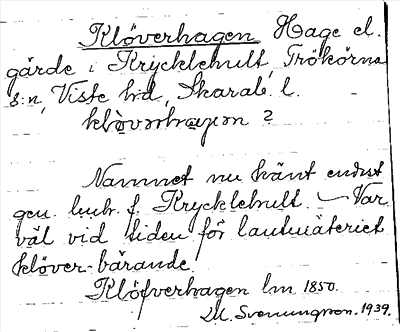 Klöverhagen Hage el.
gärde i Krycklehult, Frökörna
s:n, Viste hd, Skarab. l.
klòvərhaɡən ?
Namnet nu känt endast
gen. lmh. f. Krycklehult. — Var
väl vid tiden för lantmäteriet
klöver-bärande.
Klöfverhagen lm 1850.
M. Svenungson. 1939.